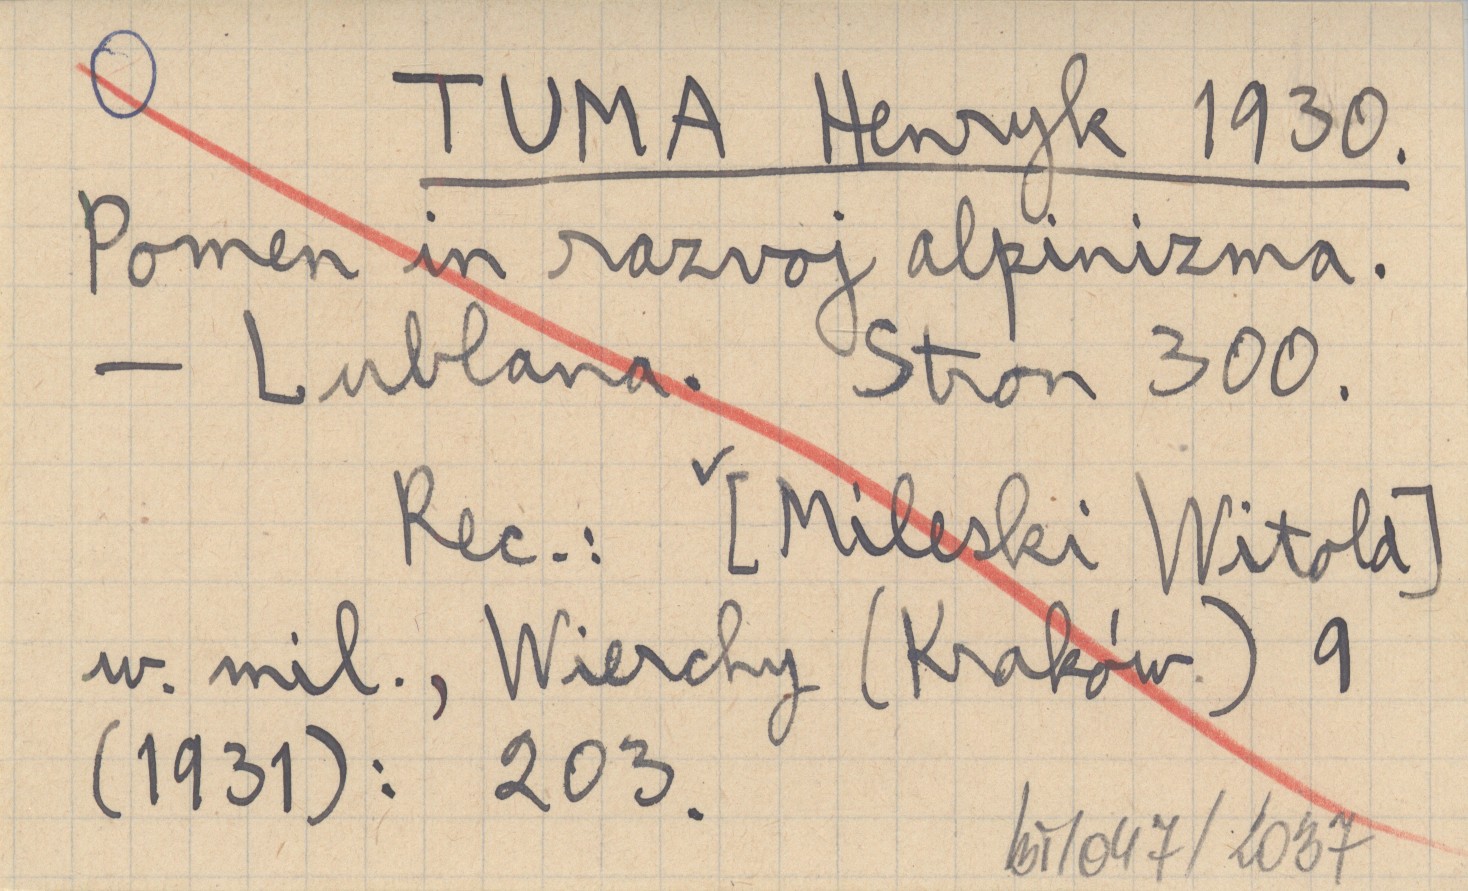 TUMA Henryk 1930.
Pomen in razvoj alpinizma.
— Lublana. Stron 300.
Rec.: [Mileski Witold]
w. mil., Wierchy (Kraków) 9
(1931): 203.
/047/2037